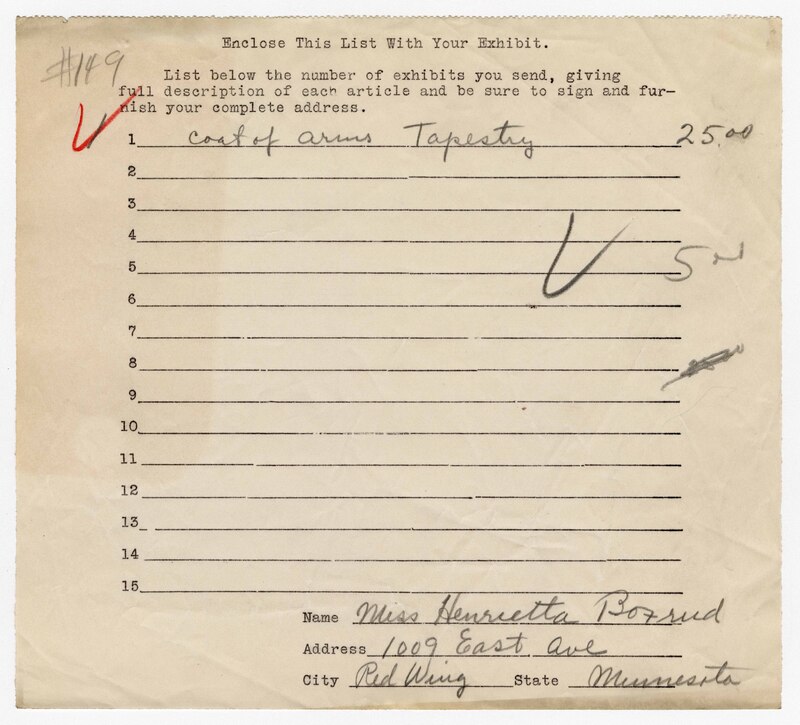 Enclose This List With Your Exhibit.
#149
List below the number of exhibits you send, giving
full description of each article and be sure to sign and fur-
nish your complete address.
1 Coat of arms Tapestry 25.00
2
3
4
5 5 00
6
7
8
9
10
11
12
13
14
15
Name Miss Henrietta Boxrud
Address 1009 East Ave
City Red Wing State Minnesota